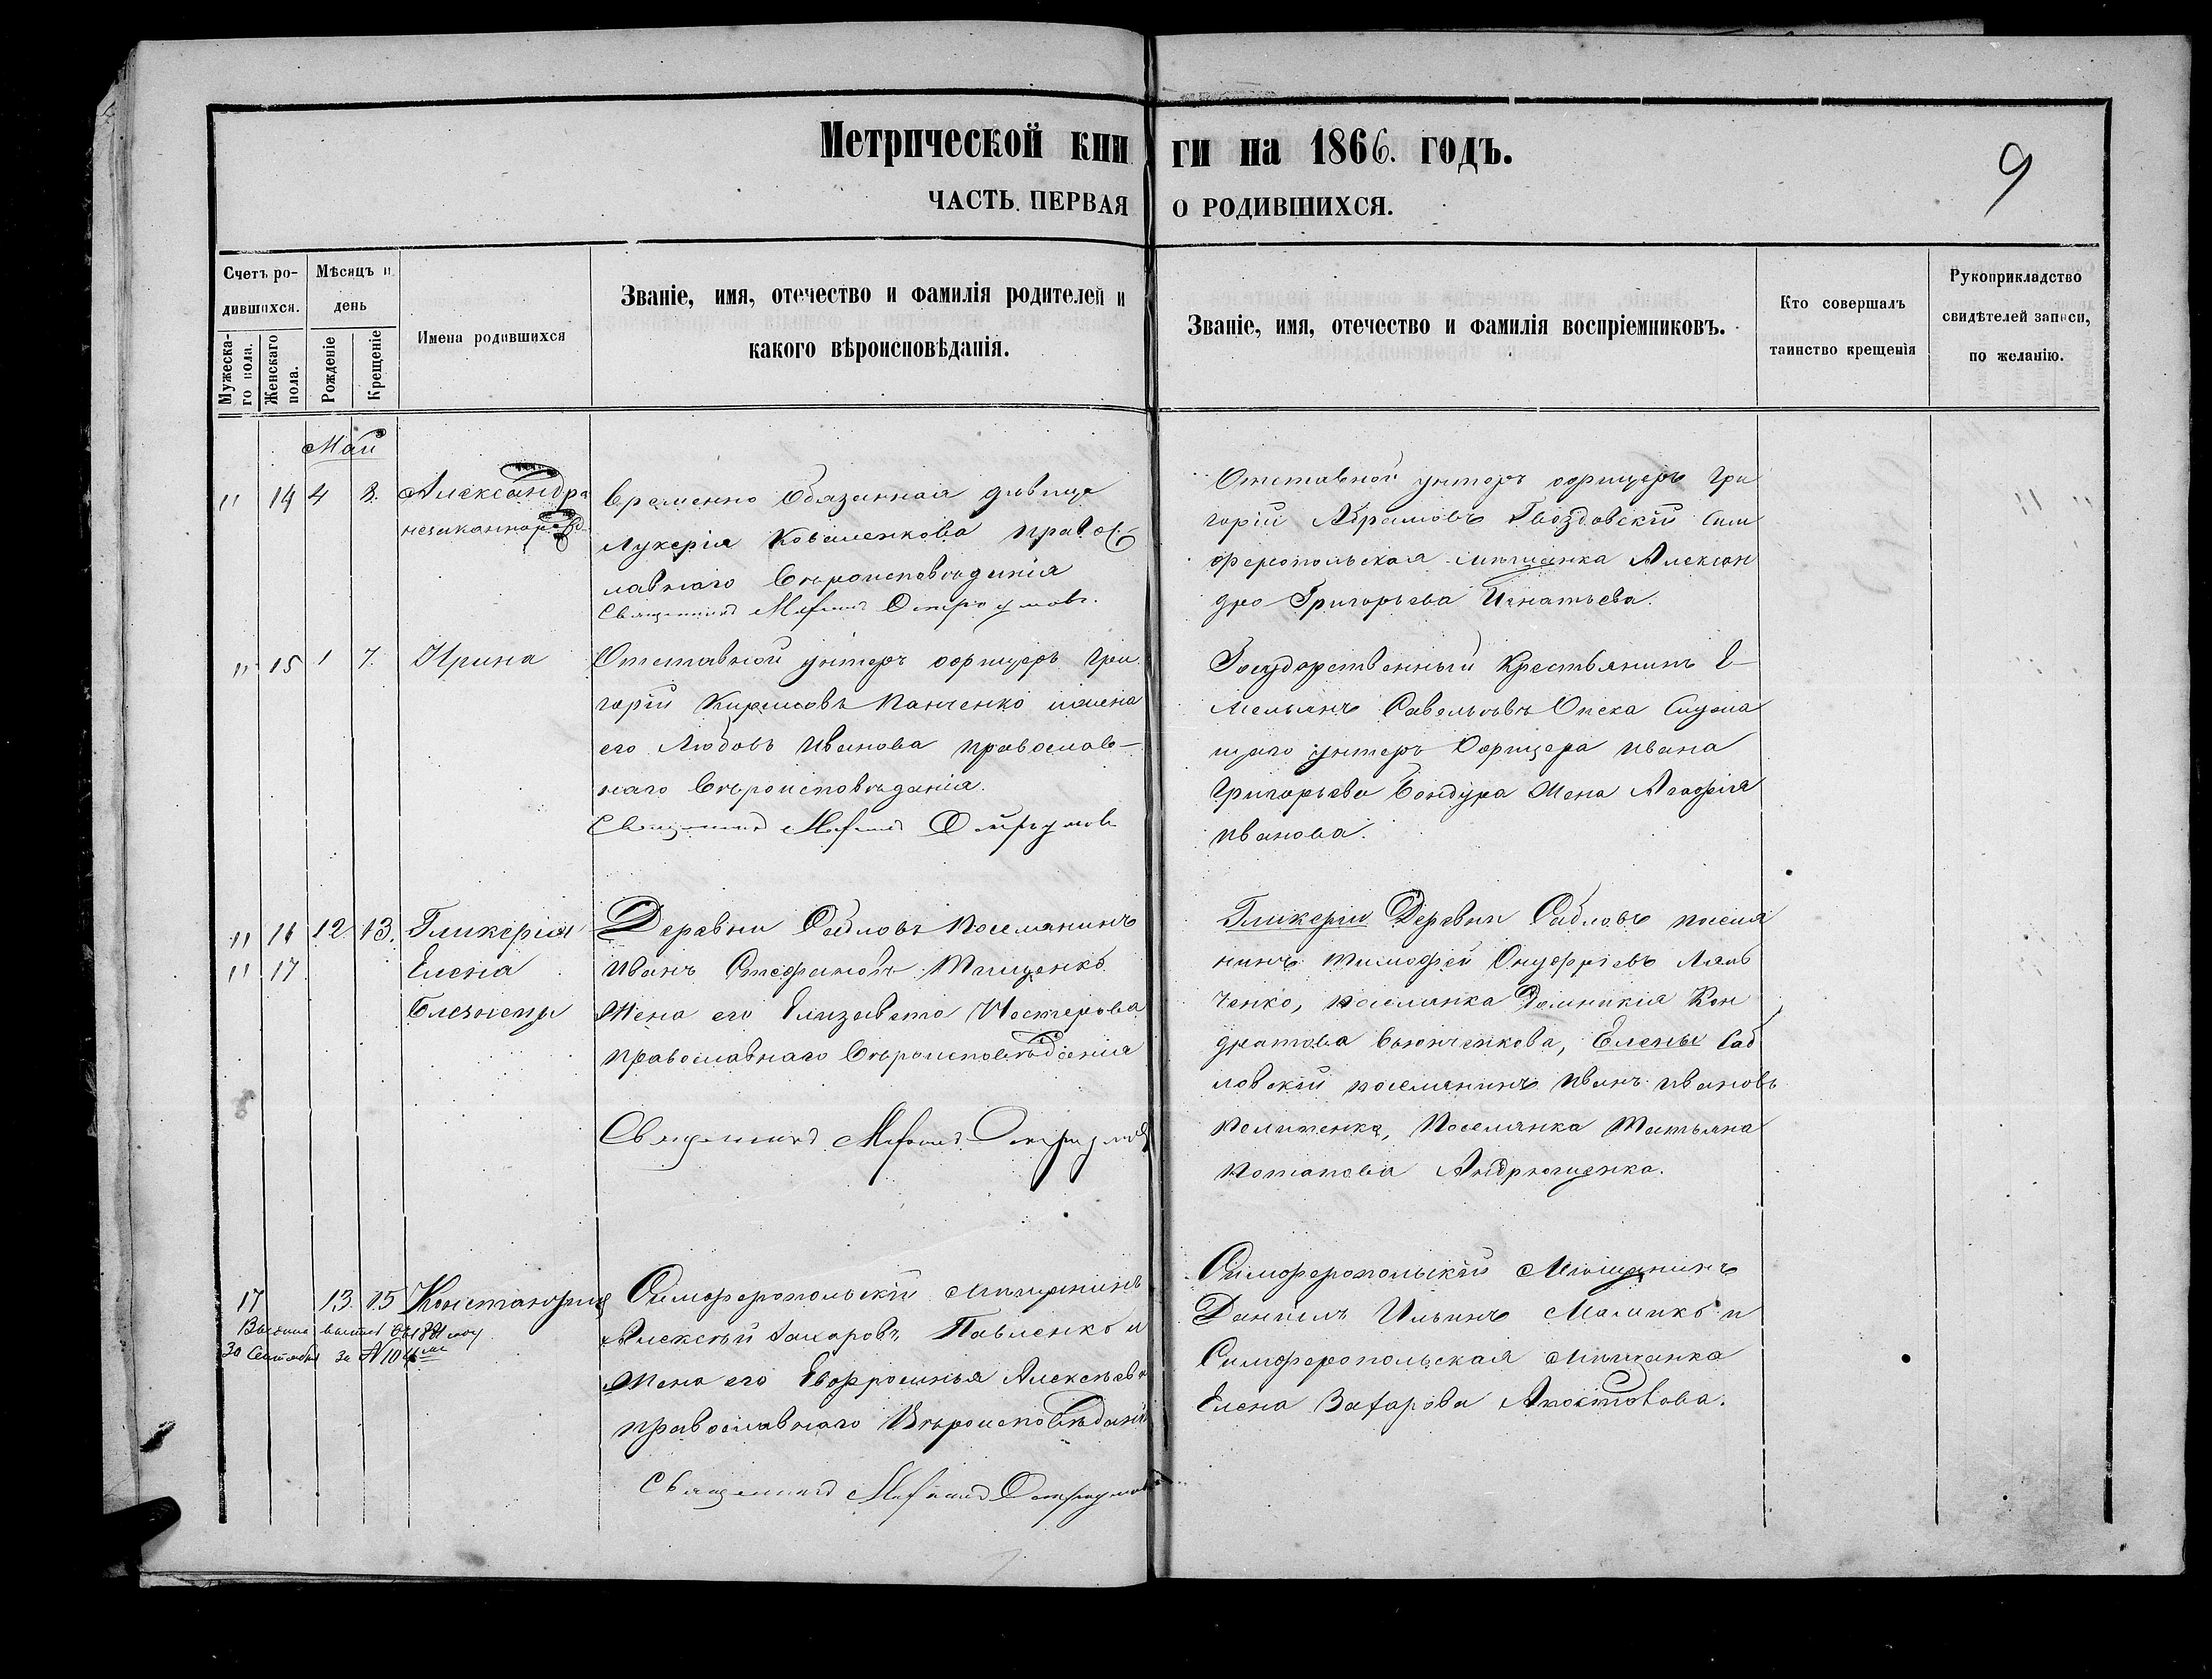 Метрической кни ги на 1866. годъ.
9
ЧАСТЬ ПЕРВАЯ О РОДИВШИХСЯ.
Счетъ родившихся.
Мужескаго пола.
Женскаго пола.
Мѣсяцъ и день
Рожденіе
Крещеніе
Имена родившихся
Званіе, имя, отечество и фамилія родителей и
какого вѣроисповѣданія.
Званіе, имя, отечество и фамилія воспріемниковъ.
Кто совершалъ
таинство крещенія
Рукоприкладство
свидѣтелей записи,
по желанію.
Май
" 14 4 8. Александра
незаконнорожд.
временно Обязанная дѣвица
Лукерія Коваленкова правос
лавнаго Вѣроисповѣданія
Священникъ
Отставной унтеръ офицеръ Гри
горій Абрамовъ Гвоздовскій Сим
феропольская мѣщанка Алексан
дра Григорьева Игнатьева.
" 15 1 7. Ирина
Отставной унтеръ офицеръ Гри
горій Панченко и жена
его Любовь Иванова православ–
наго Вѣроисповѣданія.
Священникъ
Государственный Крестьянинъ Е–
мельянъ Савельевъ Опека Служа
щаго унтеръ Офицера Ивана
Григорьева Бондура Жена Агафія
Иванова.
" 16 12 13. Гликерія
" 17 Елена
Близнецы
Деревни Сабловъ поселянинъ
Иванъ Стефановъ Тищенко
Жена его Елизавета Нестерова
православнаго Вѣроисповѣданія
Священникъ
Гликеріи Деревни Сабловъ поселя
нинъ Тимофей Онуфріевъ Ляль
ченко, поселянка Домникія Кон
дратова Елены Саб
ловскій поселянинъ Иванъ Ивановъ
Поселянка Татьяна
Потапова Андрющенко.
17 13 15 Константинъ
30 Сентября за №
Симферопольскій мѣщанинъ
Алексѣй Захаровъ Павленко и
Жена его Евфросинья Алексѣева
православнаго Вѣроисповѣданія
Священникъ
Симферопольскій Мѣщанинъ
Даніилъ Ильинъ и
Симферопольская мѣщанка
Елена Захарова Апостолова.